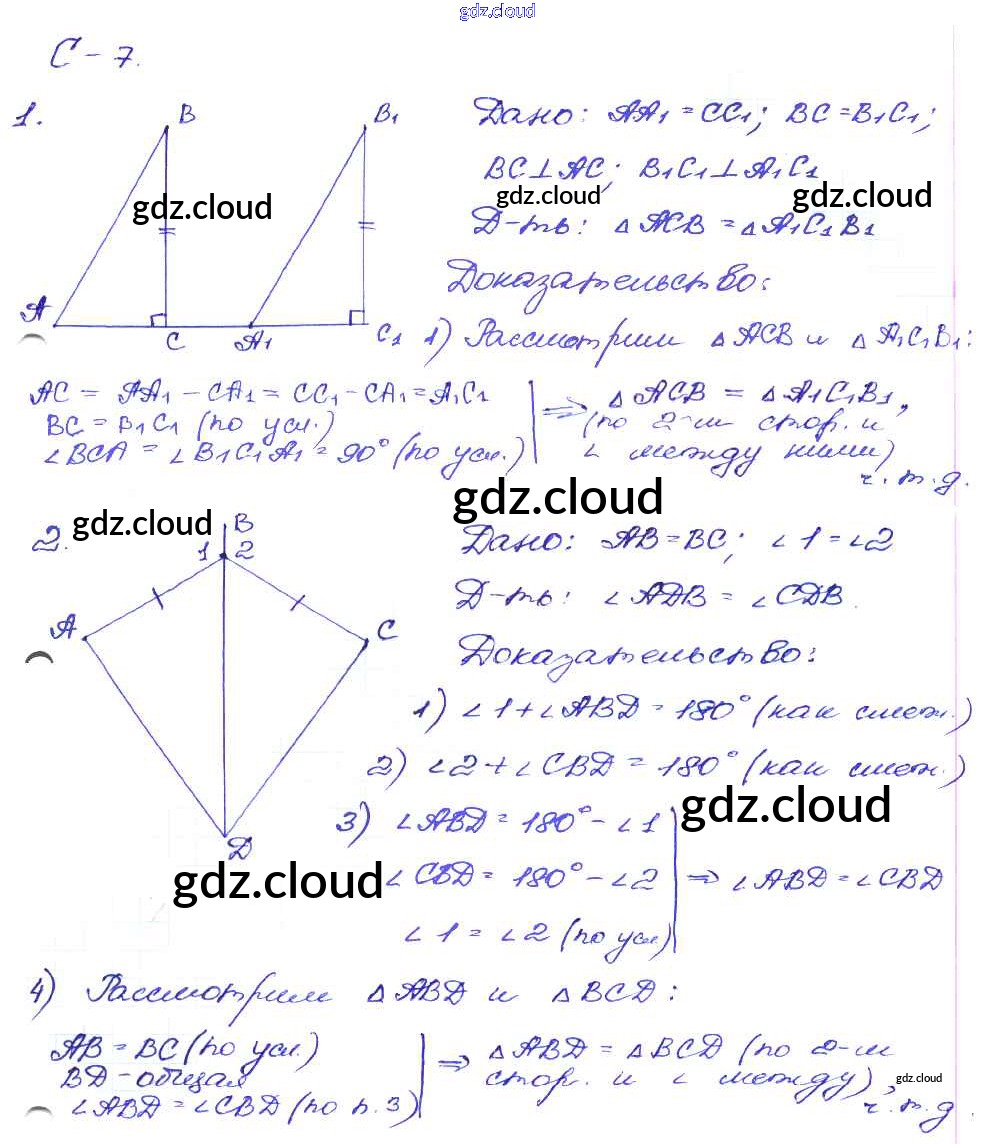 gdz.cloud
С-7.
1.
B
B₁
A
C
A₁
C₁
Дано: AA₁ = CC₁; BC = B₁C₁;
BC ⊥ AC; B₁C₁ ⊥ A₁C₁
gdz.cloud gdz.cloud gdz.cloud
Д-ть: △ACB = △A₁C₁B₁
Доказательство:
1) Рассмотрим △ACB и △A₁C₁B₁:
AC = AA₁ - CA₁ = CC₁ - CA₁ = A₁C₁
BC = B₁C₁ (по усл.)
∠BCA = ∠B₁C₁A₁ = 90° (по усл.)
⇒ △ACB = △A₁C₁B₁,
(по 2-м стор. и
∠ между ними)
ч.т.д.
gdz.cloud
gdz.cloud
2.
B
1 2
A
C
D
Дано: AB = BC; ∠1 = ∠2
Д-ть: ∠ADB = ∠CDB.
Доказательство:
1) ∠1 + ∠ABD = 180° (как смеж.)
2) ∠2 + ∠CBD = 180° (как смеж.)
gdz.cloud
3) ∠ABD = 180° - ∠1
gdz.cloud
∠CBD = 180° - ∠2
∠1 = ∠2 (по усл.)
⇒ ∠ABD = ∠CBD
4) Рассмотрим △ABD и △BCD:
AB = BC (по усл.)
BD - общая
∠ABD = ∠CBD (по п.3)
⇒ △ABD = △BCD (по 2-м
стор. и ∠ между),
gdz.cloud
ч.т.д.